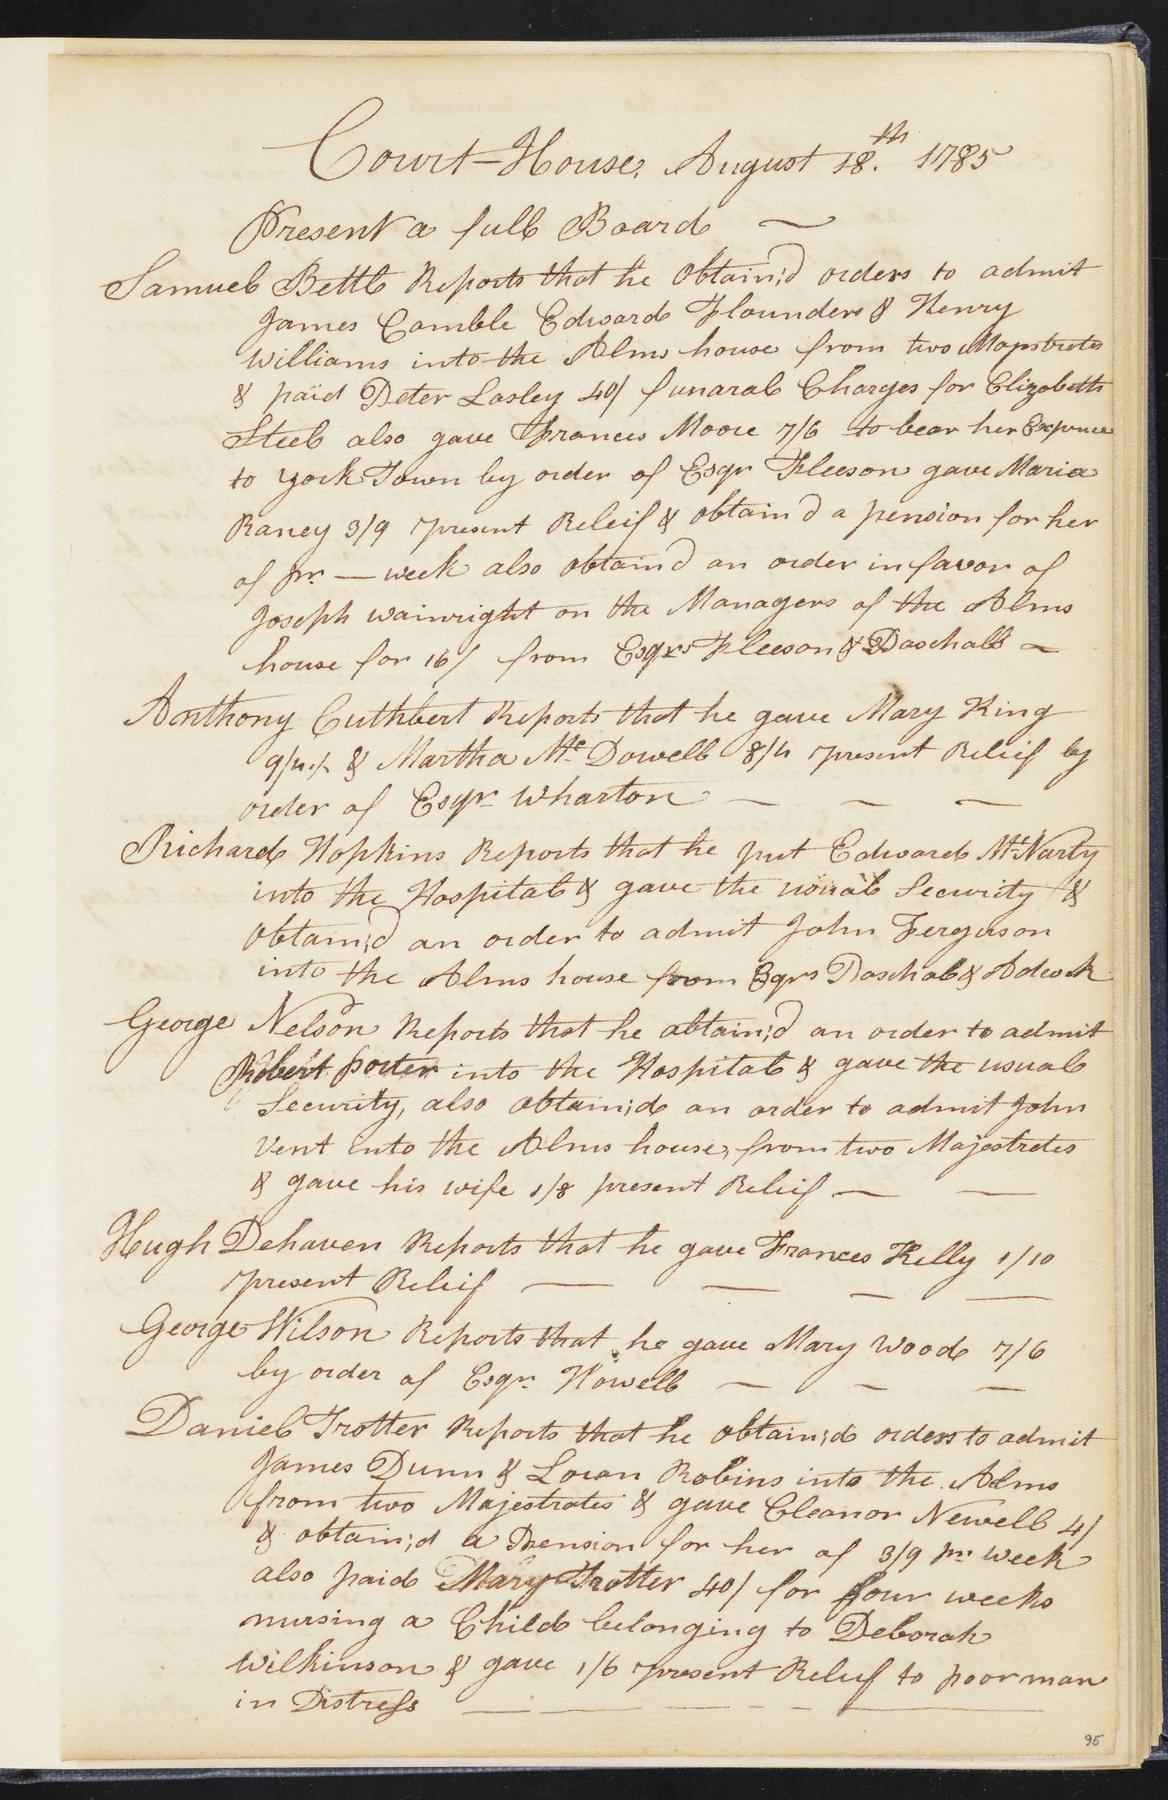 Court-House, August 18.th 1785
Present a full Board
Samuel Bettle Reports that he Obtain;d orders to admit
James Camble Edward Flounders & Henry
Williams into the Alms house from two Majestrates
& paid Peter Lasley 40/ funaral Charges for Elizabeth
Steel also gave Frances Moore 7/6 to bear her Expence
to York Town by order of Esqr Fleeson gave Maria
Raney 3/9 present Releif & obtain'd a pension for her
of pr — week also obtain'd an order in favor of
Joseph Wainright on the Managers of the Alms
house for 16/ from Esqrs Fleeson & Paschall
Anthony Cuthbert Reports that he gave Mary King
9/4.. & Martha Mc Dowell 8/4 present Releif by
order of Esqr Wharton
Richard Hopkins Reports that he put Edward Mc Narty
into the Hospital & gave the usual Security &
Obtain;d an order to admit John Ferguson
into the Alms house from Esqrs Paschal & Adcock
George Nelson Reports that he obtain;d an order to admit
Robert porter into the Hospital & gave the usual
Security, also obtain;d an order to admit John
Vent into the Alms house, from two Majestrates
& gave his wife 1/8 present Releif
Hugh Dehaven Reports that he gave Frances Kelly 1/10
present Releif
George Wilson Reports that he gave Mary Wood 7/6
by order of Esqr. Howell
Daniel Trotter Reports that he obtain;d orders to admit
James Dunn & Loran Robins into the Alms
from two Majestrates & gave Eleanor Newell 4/
& obtain;d a Pension for her of 3/9 pr week
also paid Mary Trotter 40/ for four weeks
nursing a Child belonging to Deborah
Wilkinson & gave 1/6 present Releif to poor man
in Distress
95